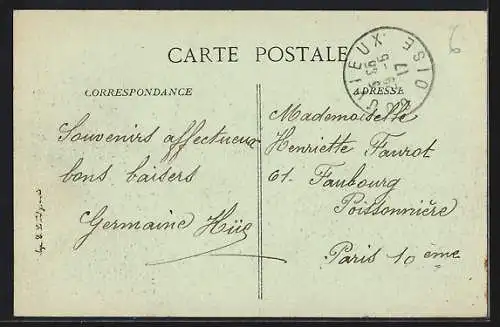 CARTE POSTALE
CORRESPONDANCE
ADRESSE
Souvenirs affectueux
bons baisers
Germaine Hüe
Mademoiselle
Henriette Faurot
61. Faubourg
Poissonnière
Paris 10ème
OISE
6